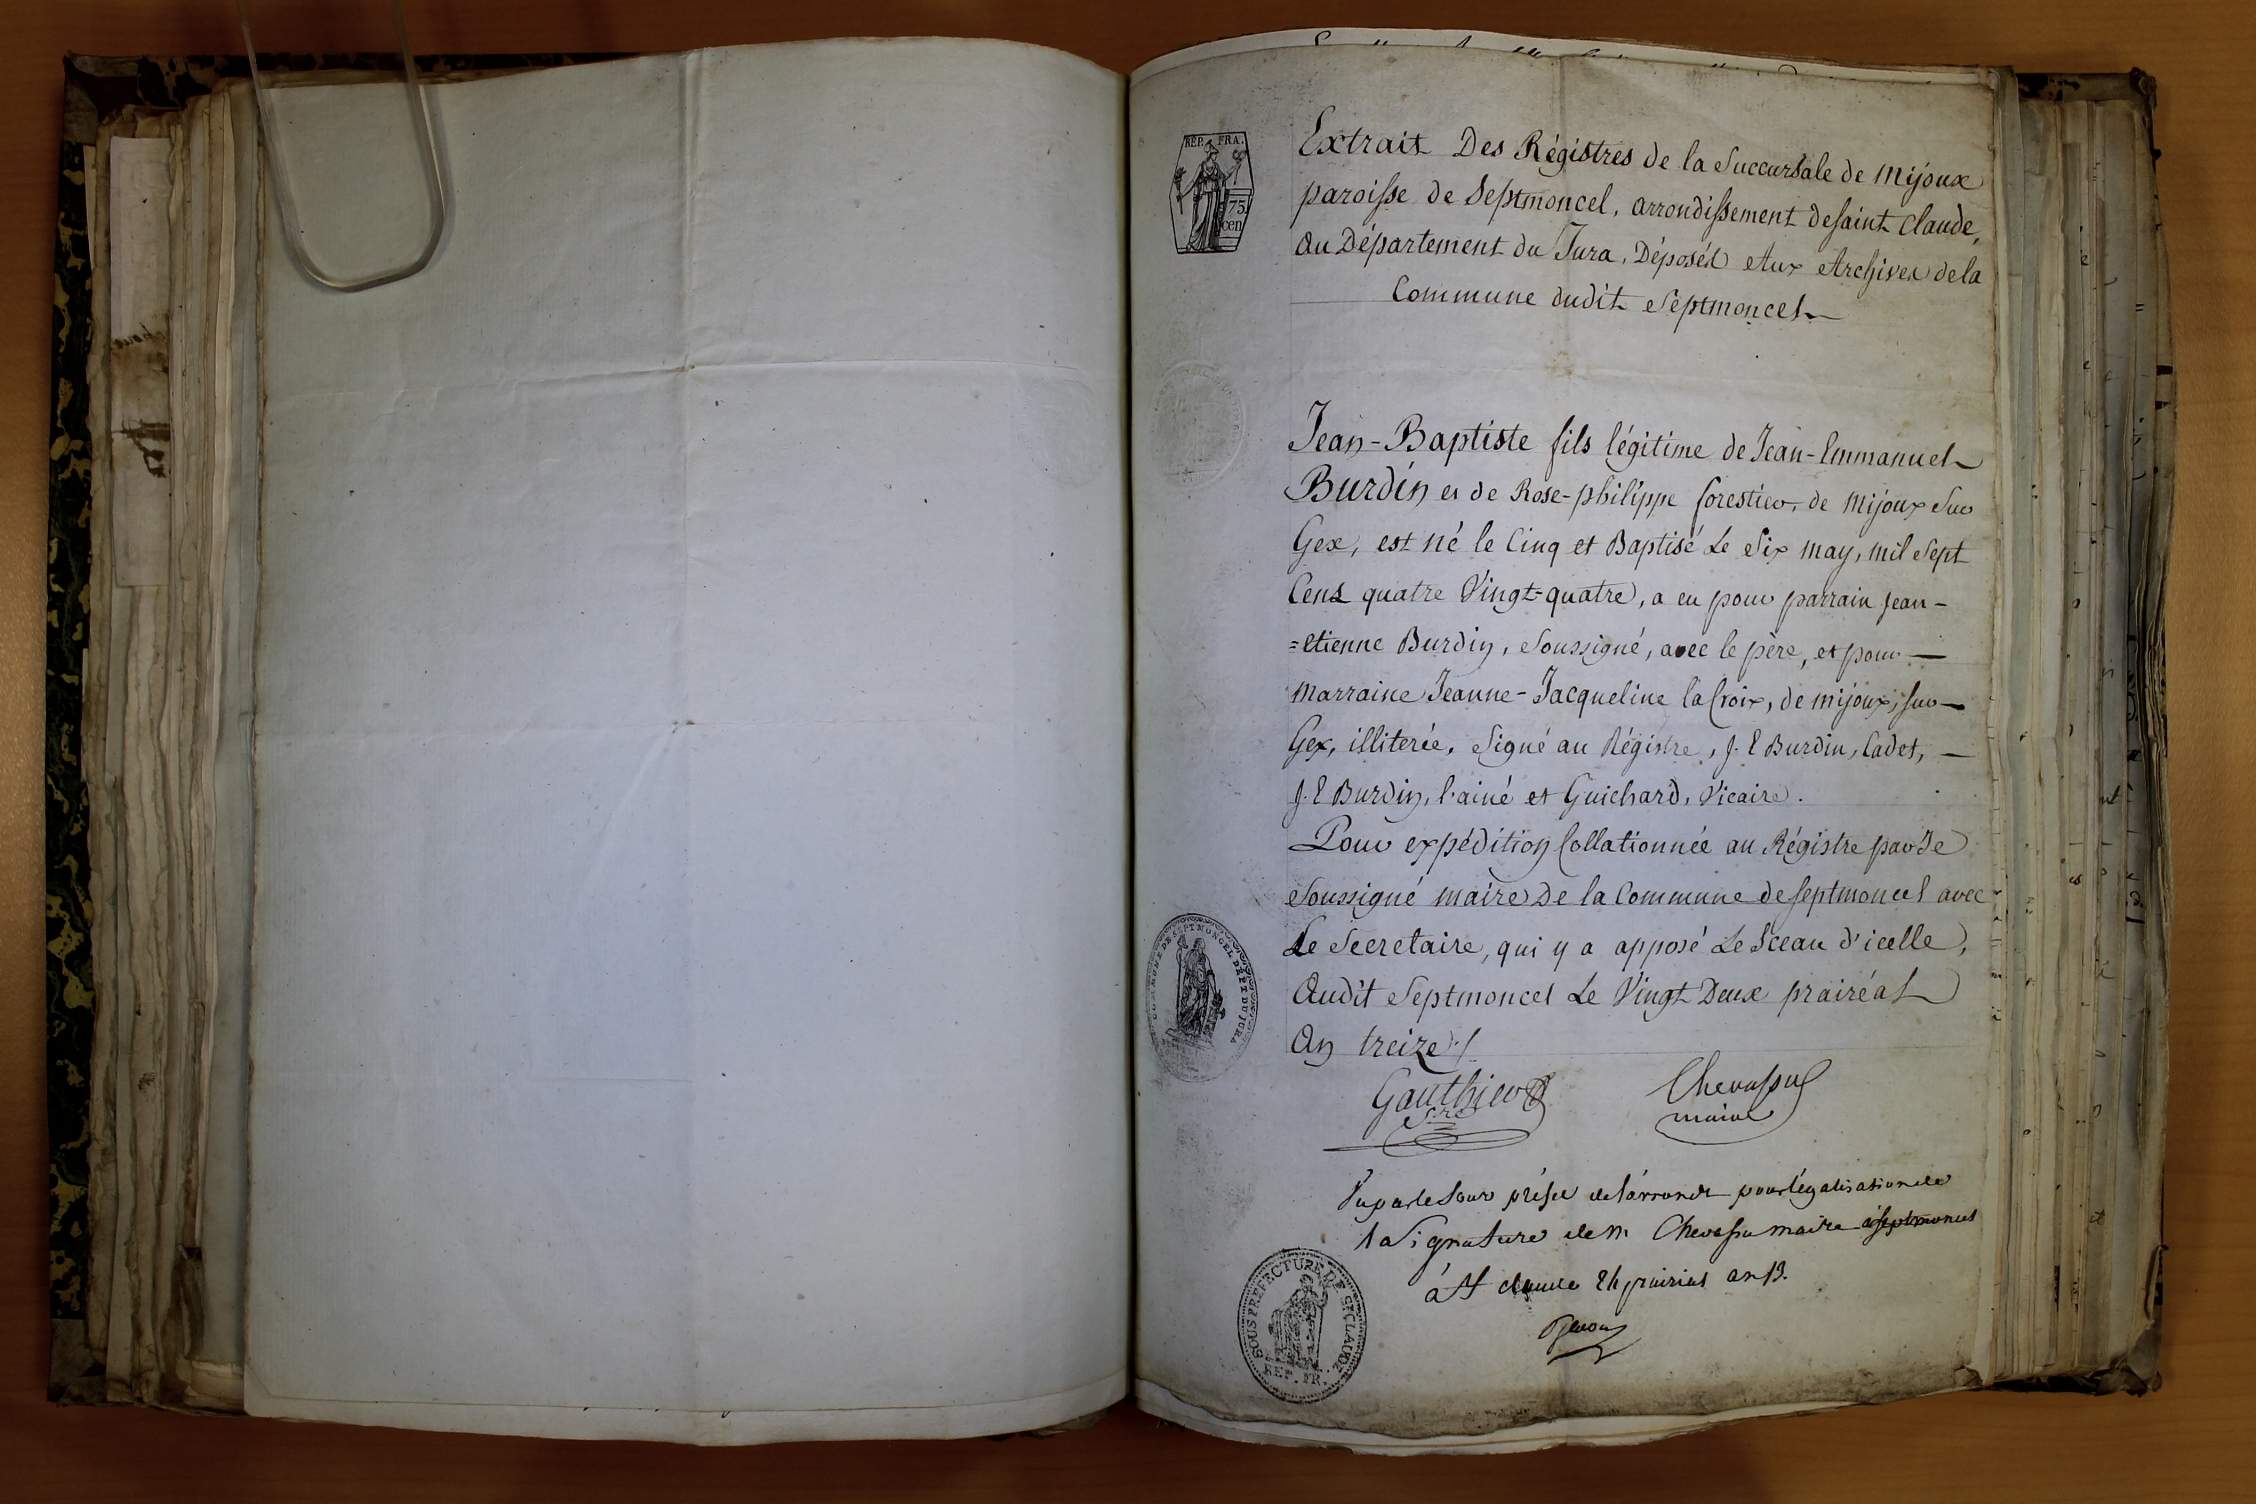 REP. FRA.
75
cen
Extrait Des Régistres de la Succursale de Mijoux
paroisse de Septmoncel, arrondissement de saint Claude,
au Département du Jura, Déposés Aux Archives de la
Commune dudit Septmoncel
Jean-Baptiste fils légitime de Jean-Emmanuel
Burdin et de Rose-philippe forestier, de Mijoux sur
Gex, est né le Cinq et Baptisé Le Six may, mil Sept
Cent quatre Vingt=quatre, a eu pour parrain Jean-
=etienne Burdin, Soussigné, avec le père, et pour
Marraine Jeanne-Jacqueline la Croix, de mijoux, sur
Gex, illiterée. Signé au Régistre, J. E Burdin, Cadet,
J. E Burdin, l'ainé et Guichard, Vicaire.
Pour expédition Collationnée au Régistre par Je
Soussigné maire De la Commune de septmoncel avec
Le Secretaire, qui y a apposé Le Sceau d'icelle,
Audit Septmoncel Le Vingt Deux prairéal
An treize
COMMUNE DE SEPTMONCEL DÉPT. DU JURA
Gauthier Chevassus
Sre maire
Vu par le Sous préfet de l'arrondt pour légalisation de
la Signature de M. Chevassu maire a septmoncel
à St claude 24 prairial an 13.
SOUS PREFECTURE DE ST CLAUDE
REP. FR.